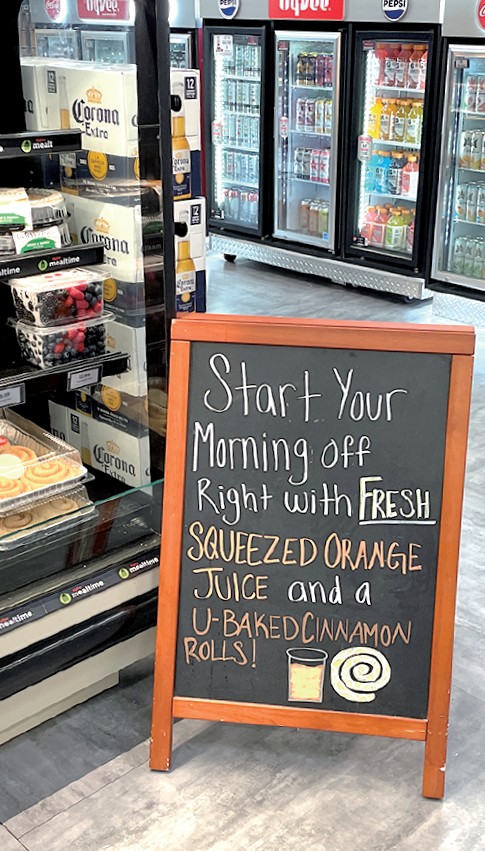 PEPSI
HyVee.
PEPSI
12
Corona
Extra
mealt
Corona
12
Corona
mealtime
mealtime
Corona
12
Corona
Extra
mealtime
mealtime
mealtime
Start Your
Morning off
Right with FRESH
SQUEEZED ORANGE
JUICE and a
U-BAKED CINNAMON
ROLLS!